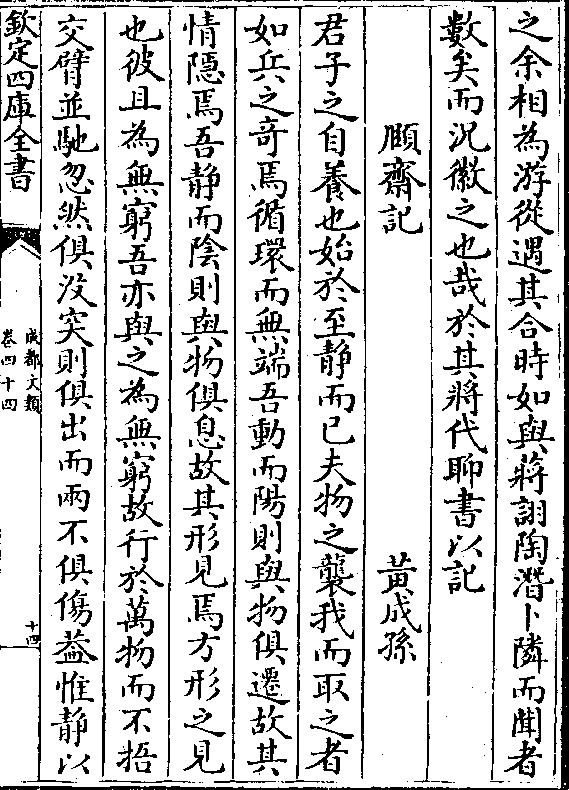 之余相為游從遇其合時如與蔣詡陶潛卜隣而聞者
數矣而況徽之也哉於其將代聊書以記
頤齋記　黃成孫
君子之自養也始於至靜而已夫物之襲我而取之者
如兵之奇焉循環而無端吾動而陽則與物俱遷故其
情隱焉吾靜而陰則與物俱息故其形見焉方形之見
也彼且為無窮吾亦與之為無窮故行於萬物而不捂
交臂並馳忽然俱沒突則俱出而兩不俱傷葢惟靜以
欽定四庫全書
成都文類
卷四十四
十四